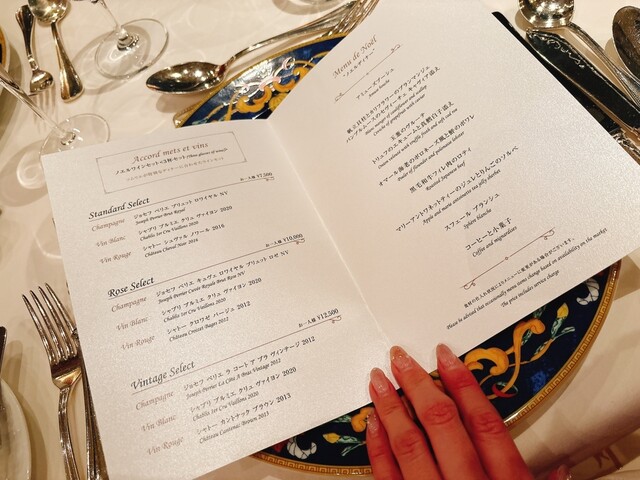 Accord mets et vins
ノエルワインセット<3杯セット(Three glasses of wine)>
お一人様 ¥7,500
Standard Select
Champagne ジョセフ ペリエ ブリュット ロワイヤル NV
Joseph Perrier Brut Royal
Vin Blanc シャブリ プルミエ クリュ ヴァイヨン 2020
Chablis 1er Cru Vaillons 2020
Vin Rouge シャトー シュヴァル ノワール 2016
Château Cheval Noir 2016
お一人様 ¥10,000
Rose Select
Champagne ジョセフ ペリエ キュヴェ ロワイヤル ブリュット ロゼ NV
Joseph Perrier Cuvée Royale Brut Rose NV
Vin Blanc シャブリ プルミエ クリュ ヴァイヨン 2020
Chablis 1er Cru Vaillons 2020
Vin Rouge シャトー クロワゼ バージュ 2012
Château Croizet Bages 2012
お一人様 ¥12,500
Vintage Select
Champagne ジョセフ ペリエ ラ コート ア ブラ ヴィンテージ 2012
Joseph Perrier La Côte À Bras Vintage 2012
Vin Blanc シャブリ プルミエ クリュ ヴァイヨン 2020
Chablis 1er Cru Vaillons 2020
Vin Rouge シャトー カントナック ブラウン 2013
Château Cantenac Brown 2013
Menu de Noël
"ノエルディナー"
アミューズブーシュ
Amuse bouche
帆立貝柱とカリフラワーのブランマンジェ
キャヴィア添え
玉葱のヴルーテ
トリュフのエキュームと真鱈白子添え
Onion velouté with truffle foam and soft cod roe
オマール海老のポロネーズ風と鮃のポワレ
Sauté of flounder and polonaise lobster
黒毛和牛フィレ肉のロティ
Roasted Japanese beef
マリーアントワネットティーのジュレとりんごのソルベ
Apple and marie antoinette tea jelly sherbet
スフェール ブランシュ
Sphère blanche
コーヒーと小菓子
Coffee and mignardises
食材の仕入れ状況によりメニューに変更がある場合がございます。
Please be advised that occasionally menu items change based on availability on the market.
The price includes service charge